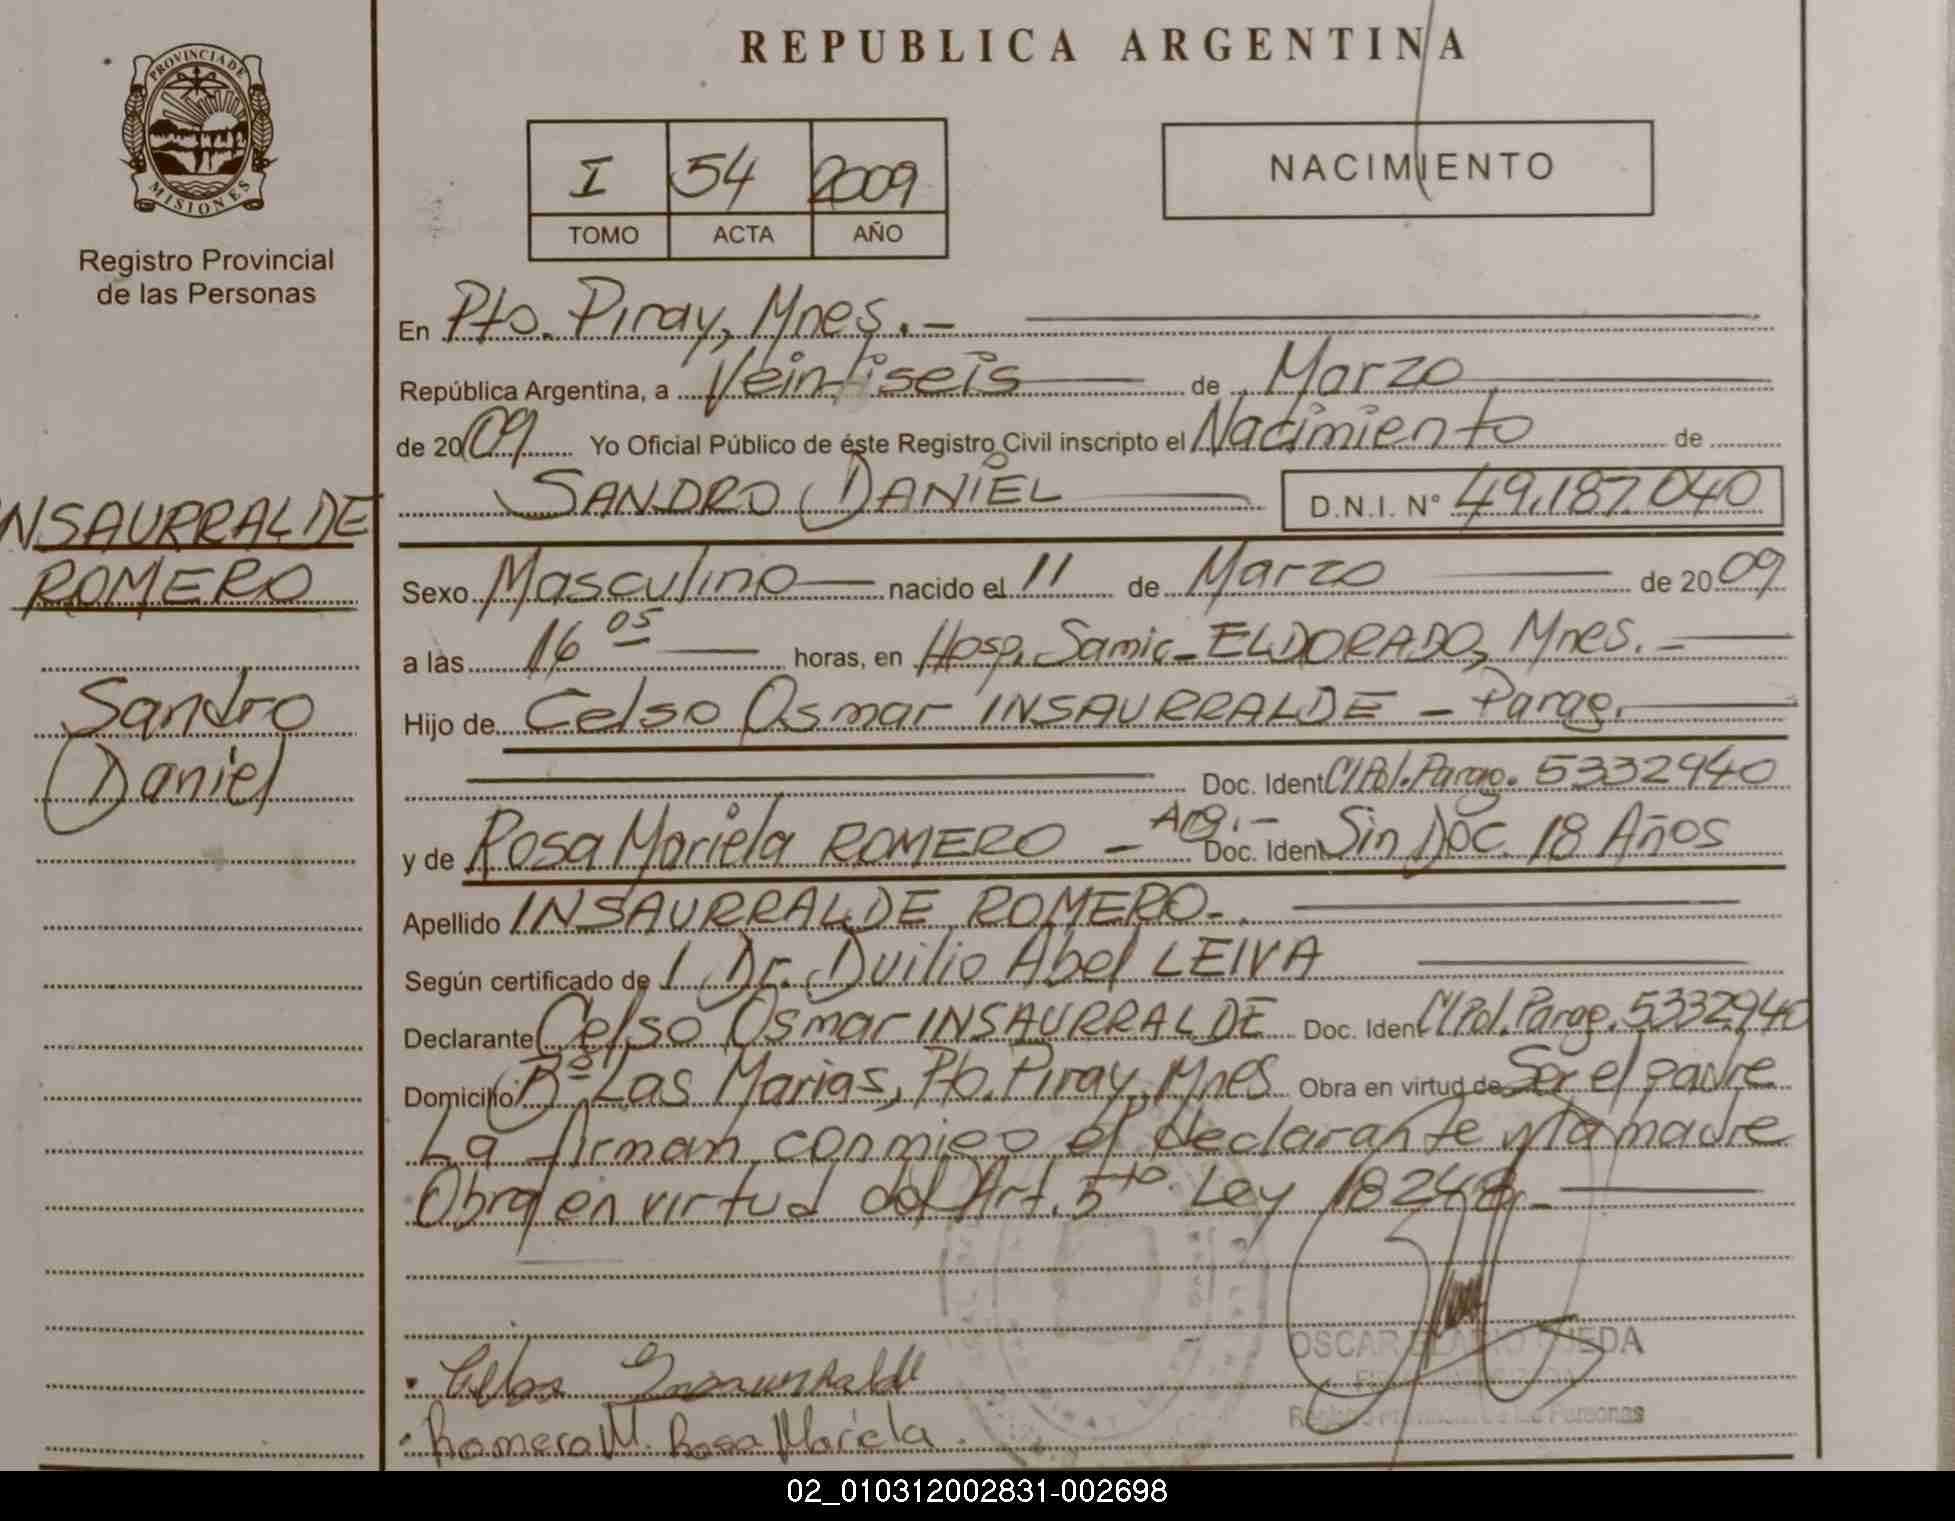 PROVINCIA DE
MISIONES
Registro Provincial
de las Personas
INSAURRALDE
ROMERO
Sandro
Daniel
REPUBLICA ARGENTINA
I 54 2009
TOMO ACTA AÑO
NACIMIENTO
En Pto. Piray, Mnes. -
República Argentina, a Veintiseis de Marzo
de 2009 Yo Oficial Público de éste Registro Civil inscripto el Nacimiento de
SANDRO DANIEL D.N.I. N° 49.187.040
Sexo Masculino nacido el 11 de Marzo de 2009
a las 16 05 horas, en Hosp. Samic - ELDORADO, Mnes. -
Hijo de Celso Osmar INSAURRALDE - Parag.
Doc. Ident C/Pol. Parag. 5332940
y de Rosa Mariela ROMERO - Arg. - Doc. Ident Sin Doc. 18 Años
Apellido INSAURRALDE ROMERO -.
Según certificado de / Dr. Duilio Abel LEIVA
Declarante Celso Osmar INSAURRALDE Doc. Ident C/Pol. Parag. 5332940
Domicilio Bº Las Marias, Pto. Piray, Mnes Obra en virtud de Ser el padre
La firman conmigo el declarante y la madre
Obra en virtud del Art. 5to. Ley 18248. -
Insaurralde
OSCAR
Romero M. Rosa Mariela
Personas
02_010312002831-002698